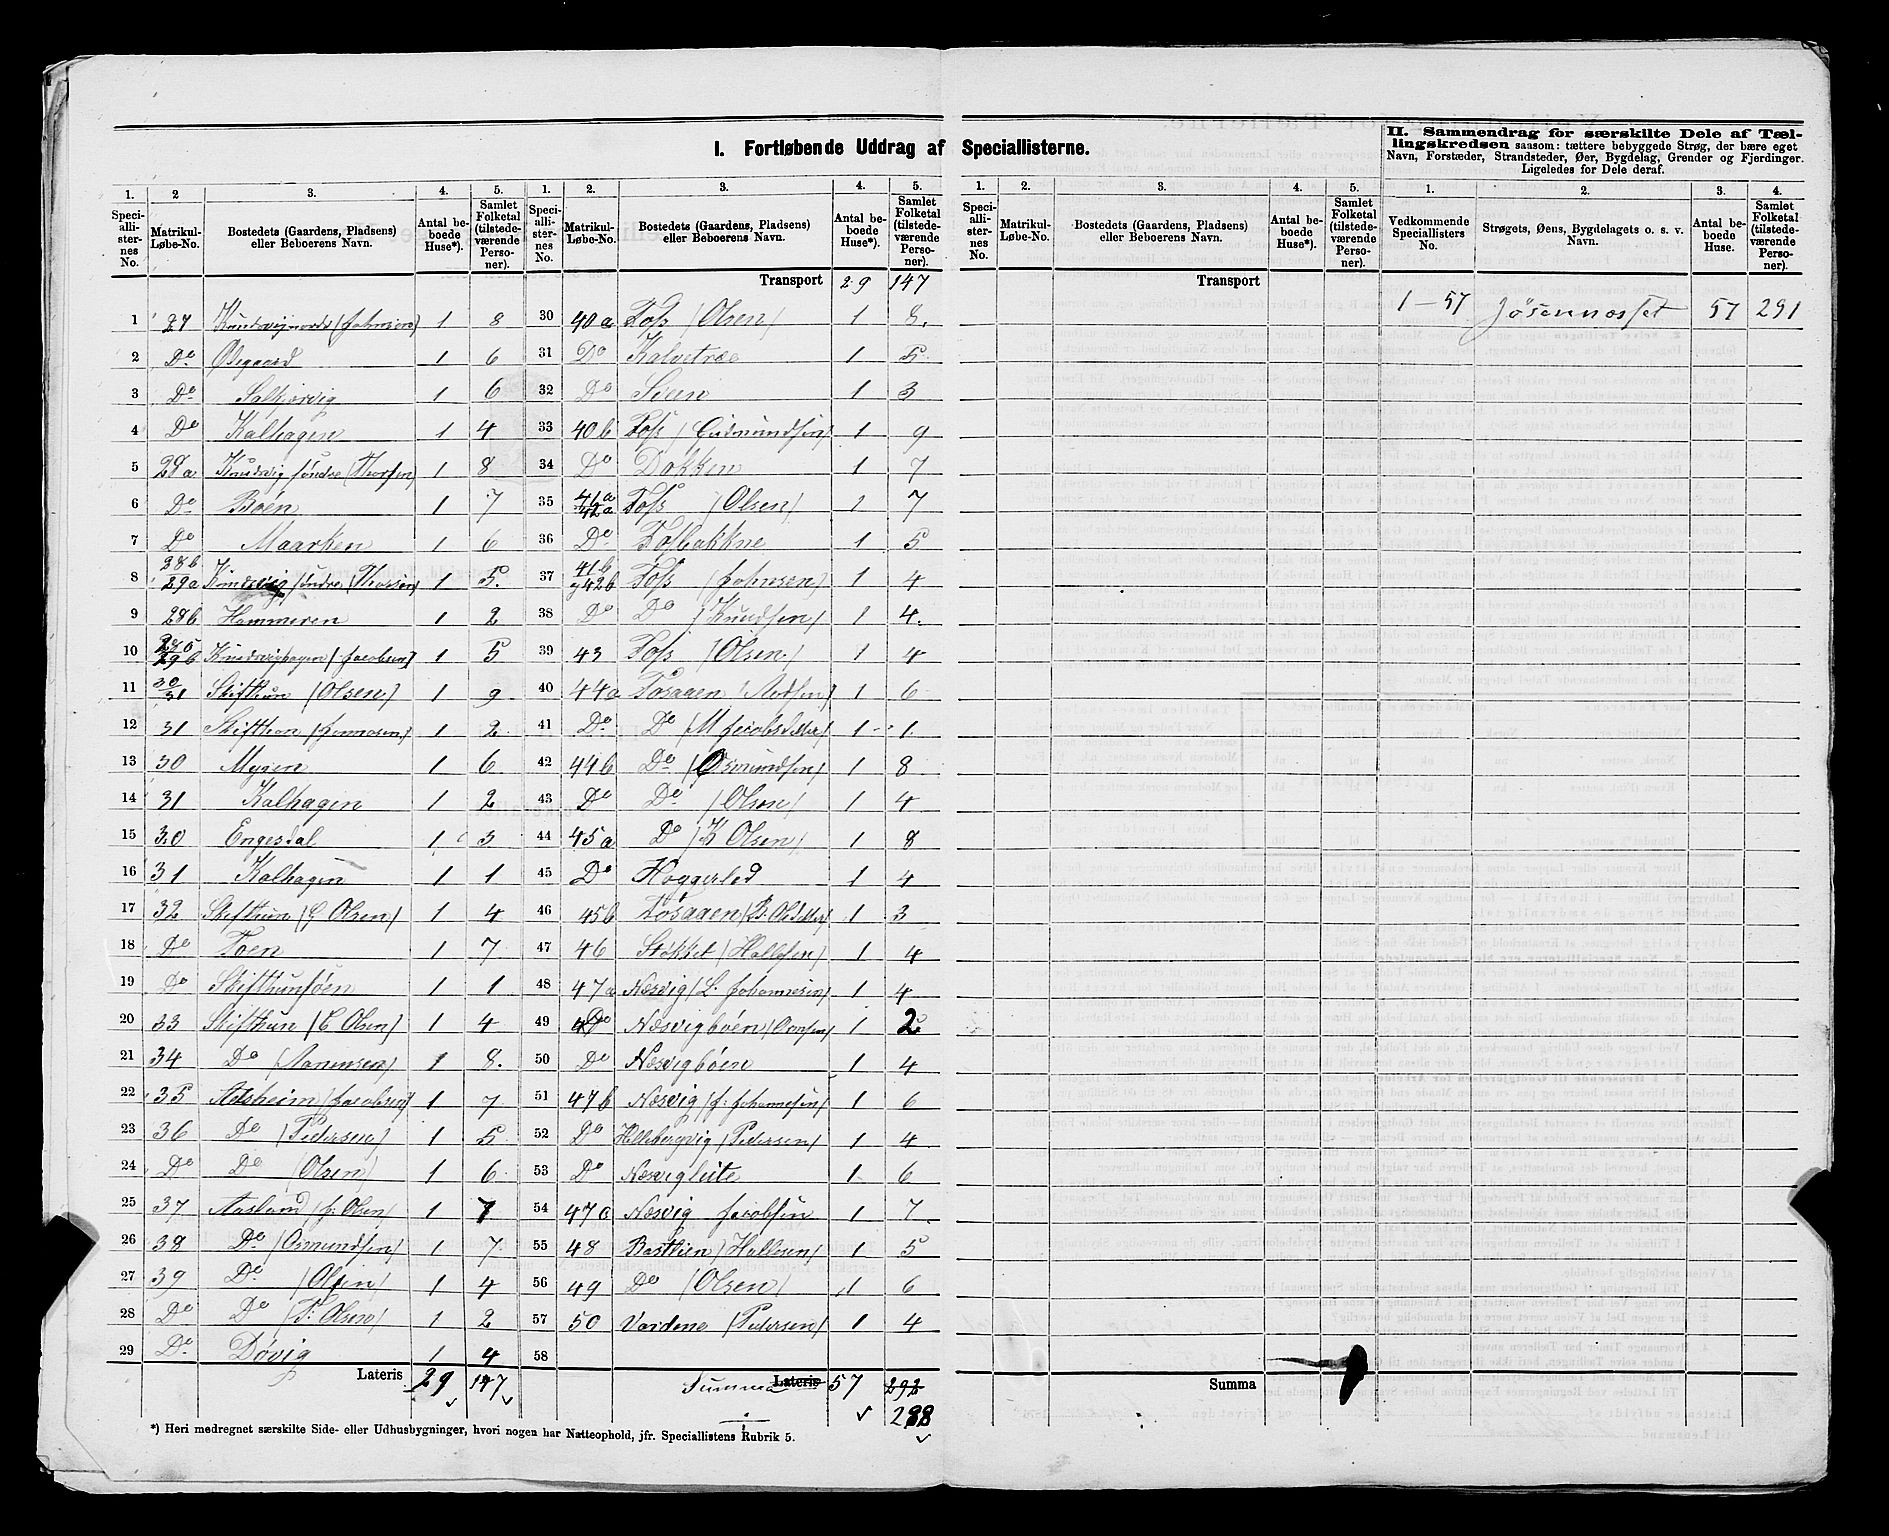 I. Fortløbende Uddrag af Speciallisterne.
II. Sammendrag for særskilte Dele af Tællingskredsen saasom: tættere bebyggede Strøg, der bære eget
Navn, Forstæder, Strandsteder, Øer, Bygdelag, Grender og Fjerdinger.
Ligeledes for Dele deraf.
1. 2 3. 4. 5. 1. 2. 3. 4. 5. 1. 2. 3. 4. 5. 1. 2. 3. 4.
Speciallisternes No. Matrikul-Løbe-No. Bostedets (Gaardens, Pladsens) eller Beboerens Navn. Antal beboede Huse*). Samlet Folketal (tilstedeværende Personer).
Speciallisternes No. Matrikul-Løbe-No. Bostedets (Gaardens, Pladsens) eller Beboerens Navn. Antal beboede Huse*). Samlet Folketal (tilstedeværende Personer).
Speciallisternes No. Matrikul-Løbe-No. Bostedets (Gaardens, Pladsens) eller Beboerens Navn. Antal beboede Huse*). Samlet Folketal (tilstedeværende Personer).
Vedkommende Speciallisters No. Strøgets, Øens, Bygdelagets o. s. v. Navn. Antal beboede Huse. Samlet Folketal (tilstedeværende Personer).
1 27 1 8
2 Do Ødegaard 1 6
3 Do 1 6
4 Do Kalhagen 1 4
5 28a Knudsvig søndre (Thorsen) 1 8
6 Do Bøen 1 7
7 Do Maarken 1 6
8 28b 29a Knudsvig søndre (Thorsen) 1 5
9 28b Hammeren 1 2
10 29b Knudsvighagen (Jacobsen) 1 5
11 30 31 Skifthun (Olsen) 1 9
12 31 Skifthun 1 2
13 30 Mygen 1 6
14 31 Kalhagen 1 2
15 30 Engesdal 1 3
16 31 Kalhagen 1 1
17 32 Skifthun (G Olsen) 1 4
18 Do Toen 1 7
19 Do Skifthunsøen 1 1
20 33 Skifthun (C Olsen) 1 4
21 34 Do 1 8
22 35 (Jacobsen) 1 7
23 36 Do (Pedersen) 1 5
24 Do Do (Olsen) 1 6
25 37 Aasland (J: Olsen) 1 7
26 38 Do (Osmundsen) 1 7
27 39 Do (Olsen) 1 4
28 Do Do (T: Olsen) 1 2
29 Do Døvig 1 4
Lateris 29 147
Transport 29 147
30 40a Foss (Olsen) 1 8
31 Do Kalvetræe 1 5
32 Do 1 3
33 40b Foss (Gudmundsen) 1 9
34 Do Dokken 1 7
35 41a 42a Foss (Olsen) 1 7
36 Do Fosbakkne 1 5
37 41b og 42b Foss (Johnsen) 1 4
38 Do Do (Knudsen) 1 4
39 43 Foss (Olsen) 1 4
40 44a Fosaaen 1 6
41 Do Do 1 1
42 44b Do (Osmundsen) 1 8
43 Do Do (Olson) 1 4
44 45a Do (K Olsen) 1 8
45 Do Hoggerled 1 4
46 45b Fosaaen 1 3
47 46 Stokket (Hallesen) 1 4
48 47a Næsvig (L. Johannesen) 1 4
49 Do Næsvigbøen 1 2
50 Do Næsvigbøen 1 4
51 47b Næsvig (J: Johannesen) 1 6
52 Do Hellebergvig (Pedersen) 1 4
53 Do Næsviglete 1 6
54 47a Næsvig Jacobsen 1 7
55 48 (Hallesen) 1 5
56 49 Do (Olsen) 1 6
57 50 Vardene (Pedersen) 1 4
58
Summa Lateris 57 292
288
Transport
Summa
Transport
1-57 Jøsennæsset 57 291
*) Heri medregnet særskilte Side- eller Udhusbygninger, hvori nogen har Natteophold, jfr. Speciallistens Rubrik 5.